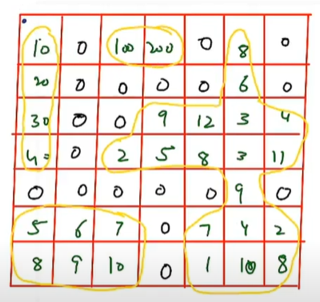 10 0 100 200 0 8 0
20 0 0 0 0 6 0
30 0 0 9 12 3 4
40 0 2 5 8 3 11
0 0 0 0 0 9 0
5 6 7 0 7 4 2
8 9 10 0 1 10 8